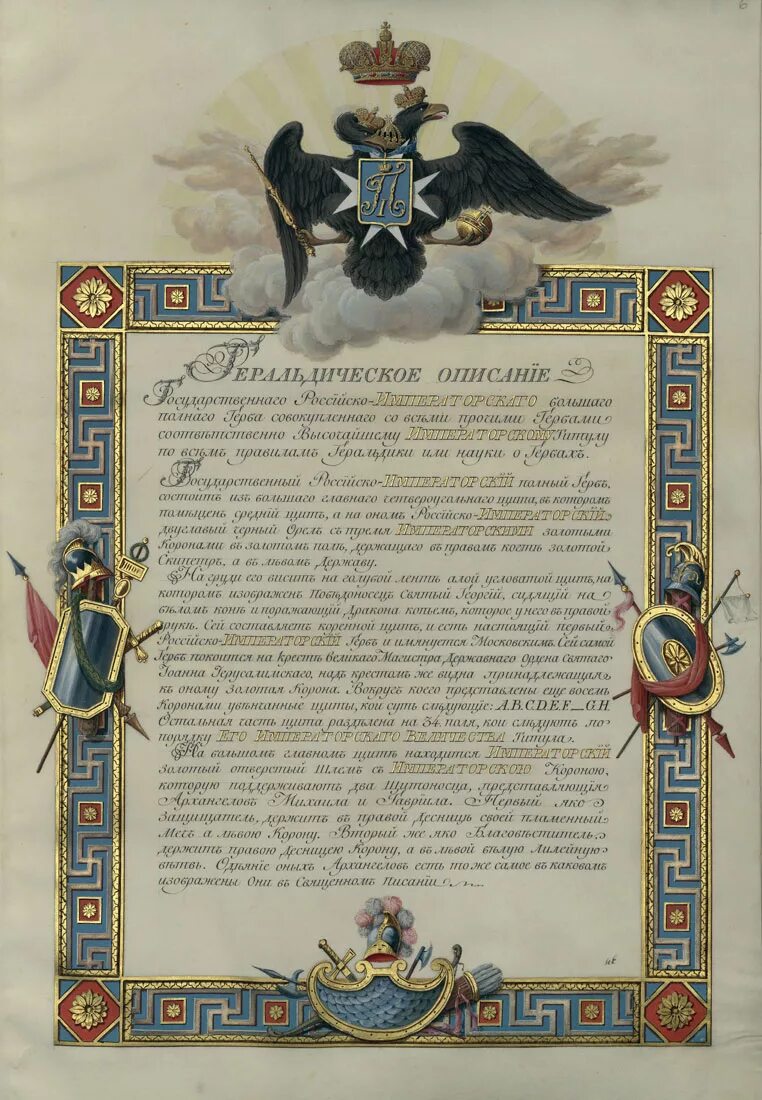 6
П I
Геральдическое описанїе
Государственнаго Россїйско-ИМПЕРАТОРСКАГО большаго
полнаго Герба совокупленнаго со всѣми прочими Гербами
соотвѣтственно Высочайшему ИМПЕРАТОРСКОМУ Титулу
по всѣмъ правиламъ Геральдики или науки о Гербахъ.
Государственный Россїйско-ИМПЕРАТОРСКЇЙ полный Гербъ,
состоитъ изъ большаго главнаго четвероугольнаго щита, въ которомъ
помѣщенъ среднїй щитъ, а на ономъ Россїйско-ИМПЕРАТОРСКЇЙ
двуглавый черный Орелъ съ тремя ИМПЕРАТОРСКИМИ золотыми
Коронами въ золотомъ полѣ, держащаго въ правомъ когтѣ золотой
Скипетръ, а въ лѣвомъ Державу.
На груди его виситъ на голубой лентѣ алой угловатой щитъ, на
которомъ изображенъ Побѣдоносецъ Святый Георгїй, сидящїй на
бѣломъ конѣ и поражающїй Дракона копьемъ, которое у него въ правой
рукѣ. Сей составляетъ коренной щитъ, и есть настоящїй первый
Россїйско-ИМПЕРАТОРСКЇЙ Гербъ и имянуется Московскимъ. Сей самой
Гербъ покоится на крестѣ великаго Магистра, Державнаго Ордена Святаго
Іоанна Іерусалимскаго, надъ крестомъ же видна принадлежащая
къ оному Золотая Корона. Вокругъ коего представлены еще восемь
Коронами увѣнчанные щиты, кои суть слѣдующїе: A.B.C.D.E.F._G.H.
Остальная часть щита раздѣлена на 34. поля, кои слѣдуютъ по
порядку ЕГО ИМПЕРАТОРСКАГО ВЕЛИЧЕСТВА Титула.
На большомъ главномъ щитѣ находится ИМПЕРАТОРСКЇЙ
золотый отверстый Шлемъ съ ИМПЕРАТОРСКОЮ Короною,
которую поддерживаютъ два Щитоносца, представляющїя
Архангеловъ Михаила и Гаврїила. Первый яко
Защититель, держитъ въ правой Десницѣ своей пламенный
Мечь а лѣвою Корону. Вторый же яко Благовѣститель,
держитъ правою Десницею Корону, а въ лѣвой бѣлую Лилейную
вѣтвь. Одѣянїе оныхъ Архангеловъ есть то же самое въ каковомъ
изображены Они въ Священномъ Писанїи.